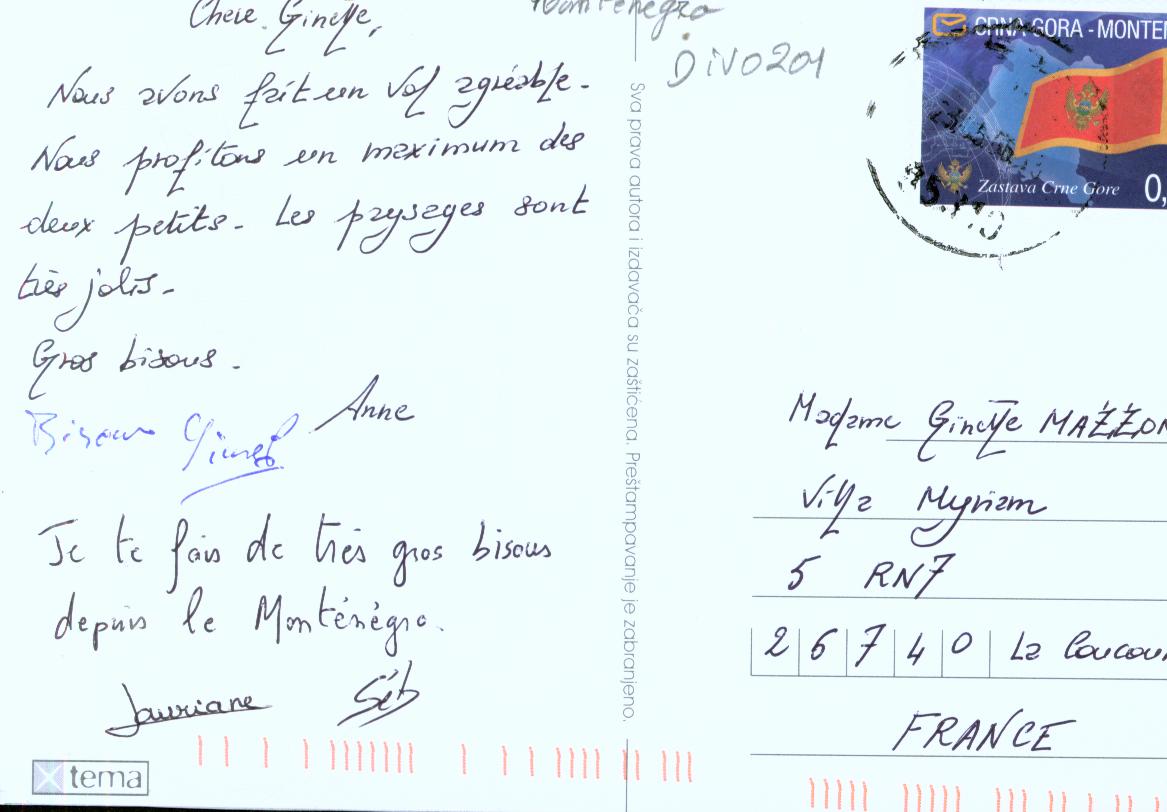 Chère Ginette,
Nous avons fait un vol agréable.
Nous profitons un maximum des
deux petits. Les paysages sont
très jolis.
Gros bisous.
Anne
Bisous
Je te fais de très gros bisous
depuis le Monténégro.
Lauriane Séb
tema
Sva prava autora i izdavača su zaštićena. Preštampavanje je zabranjeno.
Montenegro
DIVO201
CRNA GORA - MONTEN
Zastava Crne Gore 0,
Madame Ginette MAZZON
Villa Myriam
5 RN7
26740 La Coucou
FRANCE